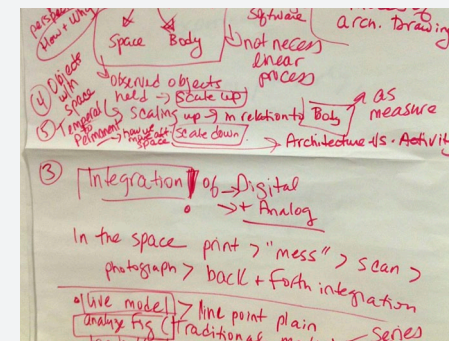 perspe
How + Why
software
arch. Drawing
Space Body
not necess
linear
process
④ Objects
w/in
space
observed objects
held → scale up
⑤ Temporal
to
Permanent
scaling up → in relation to Body
as
measure
how we
space scale down
→ Architecture vs. Activity
③ Integration! of → Digital
→ + Analog
In the space print > "mess" > scan >
photograph > back + forth integration
• live model > line point plain
analyze fig (traditional
series